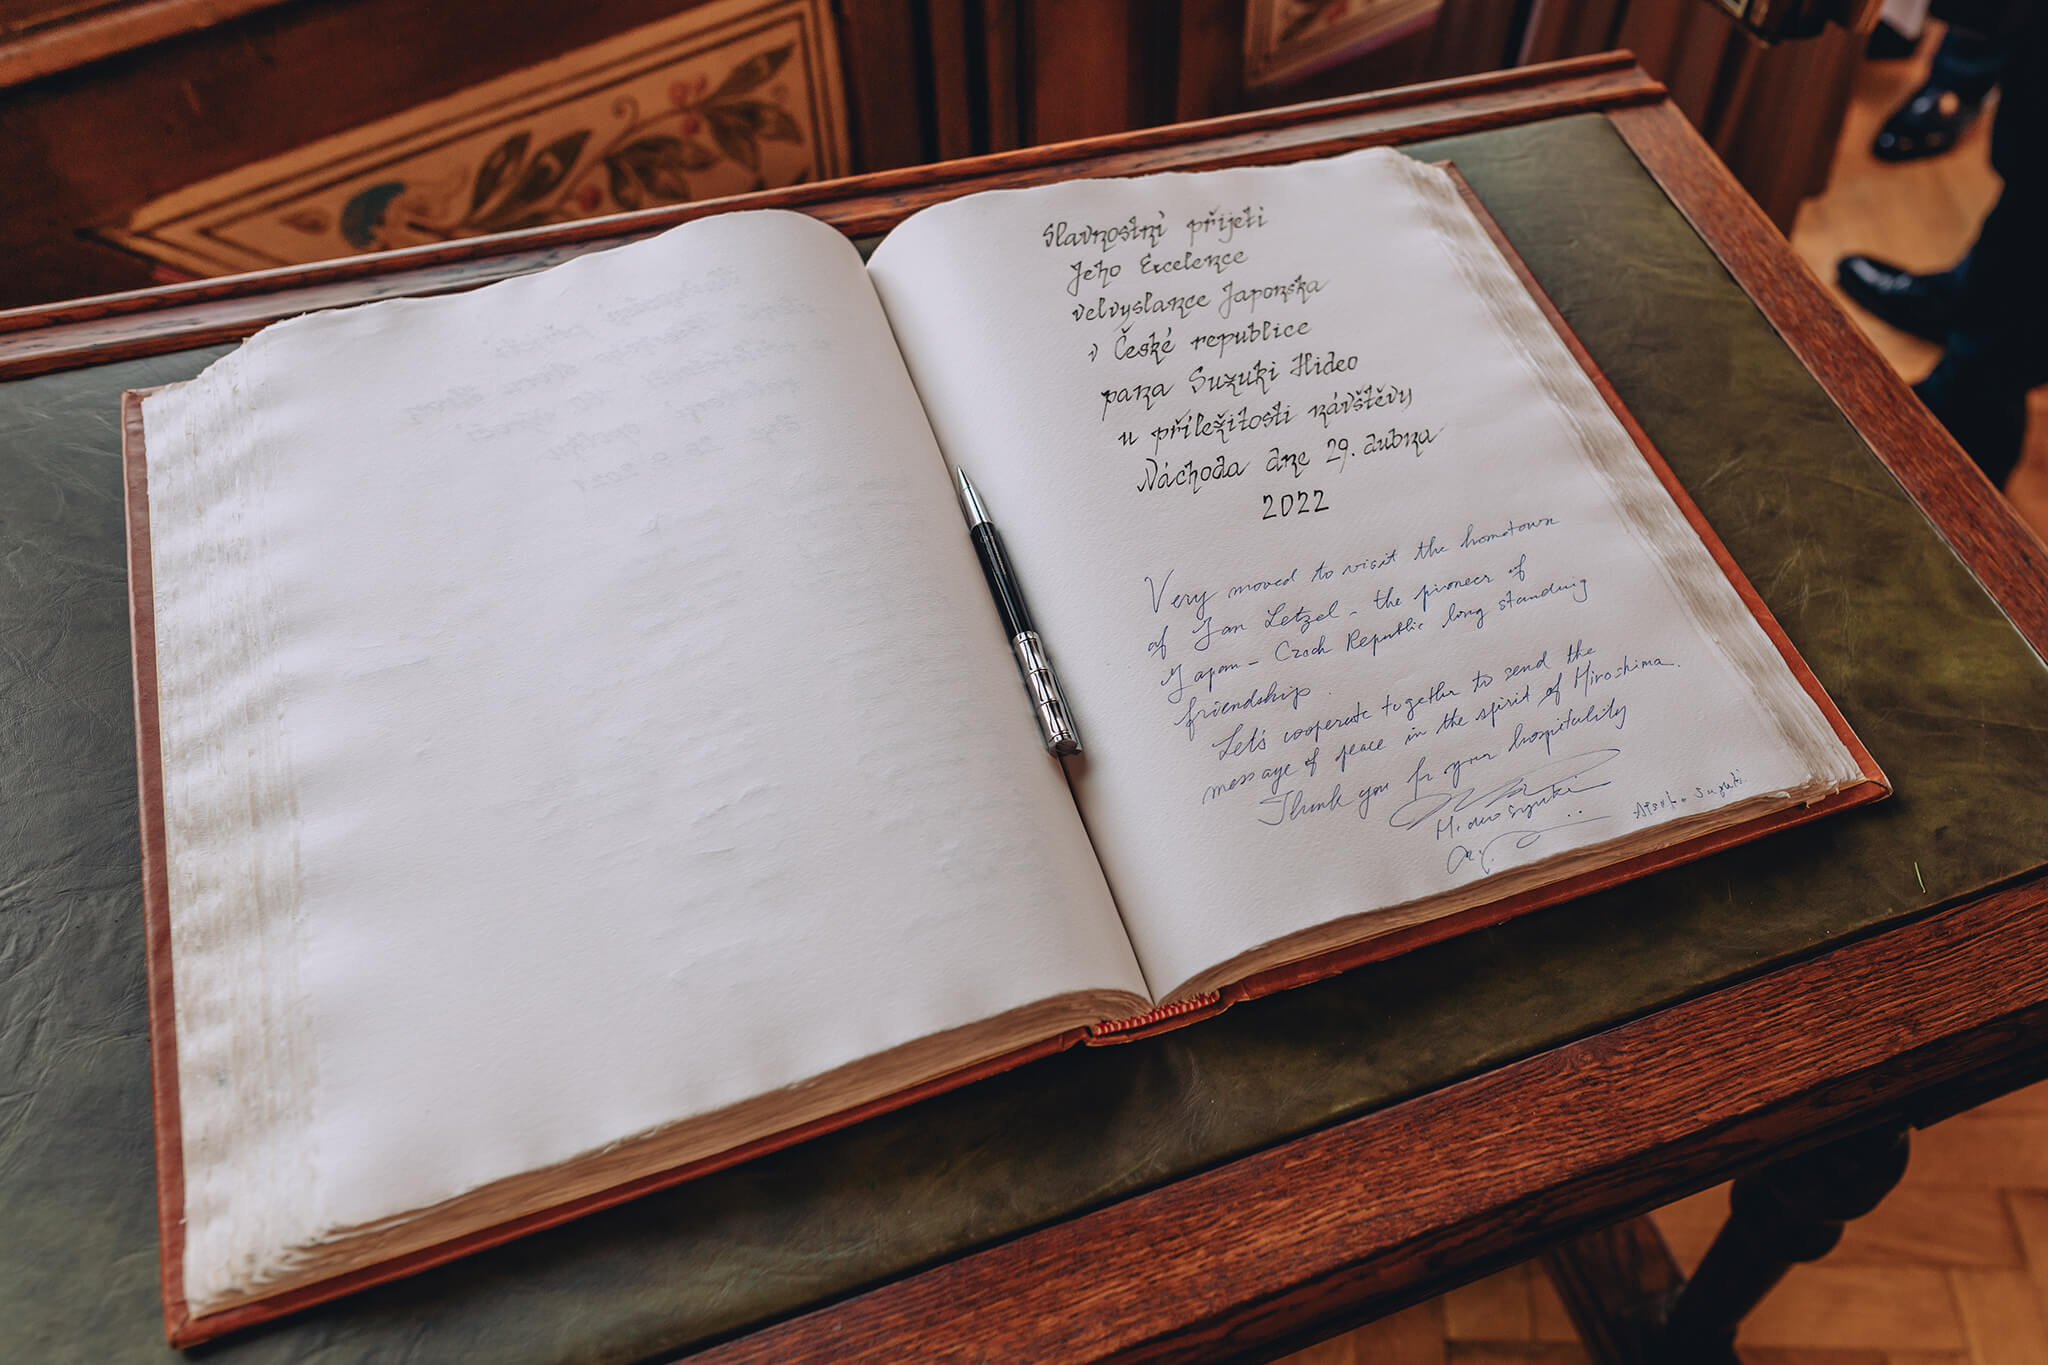 Slavnostní přijetí
Jeho Excelence
velvyslance Japonska
v České republice
pana Suzuki Hideo
u příležitosti návštěvy
Náchoda dne 29. dubna
2022
Very moved to visit the hometown
of Jan Letzel - the pioneer of
Japan - Czech Republic long standing
friendship.
Let's cooperate together to send the
message of peace in the spirit of Hiroshima.
Thank you for your hospitality
Hideo Suzuki
Suzuki